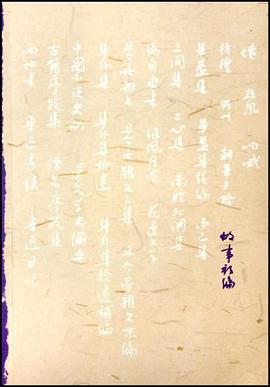 坟 热风 呐喊
彷徨 野草 朝花夕拾
故事新编
华盖集 华盖集续编 而已集
三闲集 二心集 南腔北调集
伪自由书 准风月谈 花边文学
且介亭杂文 且介亭杂文二集 且介亭杂文末编
集外集 集外集拾遗 集外集拾遗补编
中国小说史略 汉文学史纲要
古籍序跋集 译文序跋集
两地书 鲁迅书信 鲁迅日记